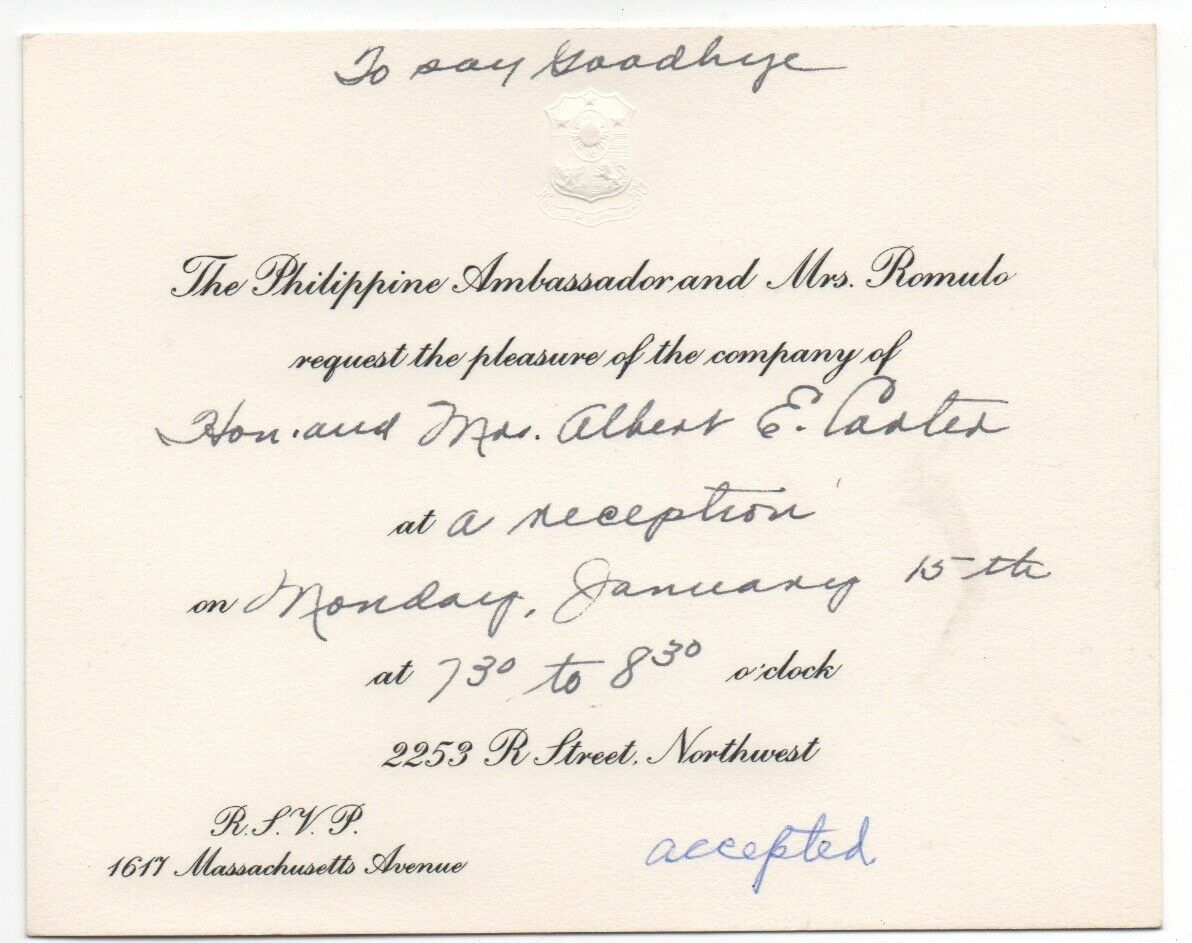 To say Goodbye
The Philippine Ambassador and Mrs. Romulo
request the pleasure of the company of
Hon. and Mrs. Albert E. Carter
at a reception
on Monday, January 15th
at 7³⁰ to 8³⁰ o'clock
2253 R Street, Northwest
R.S.V.P.
1617 Massachusetts Avenue
accepted